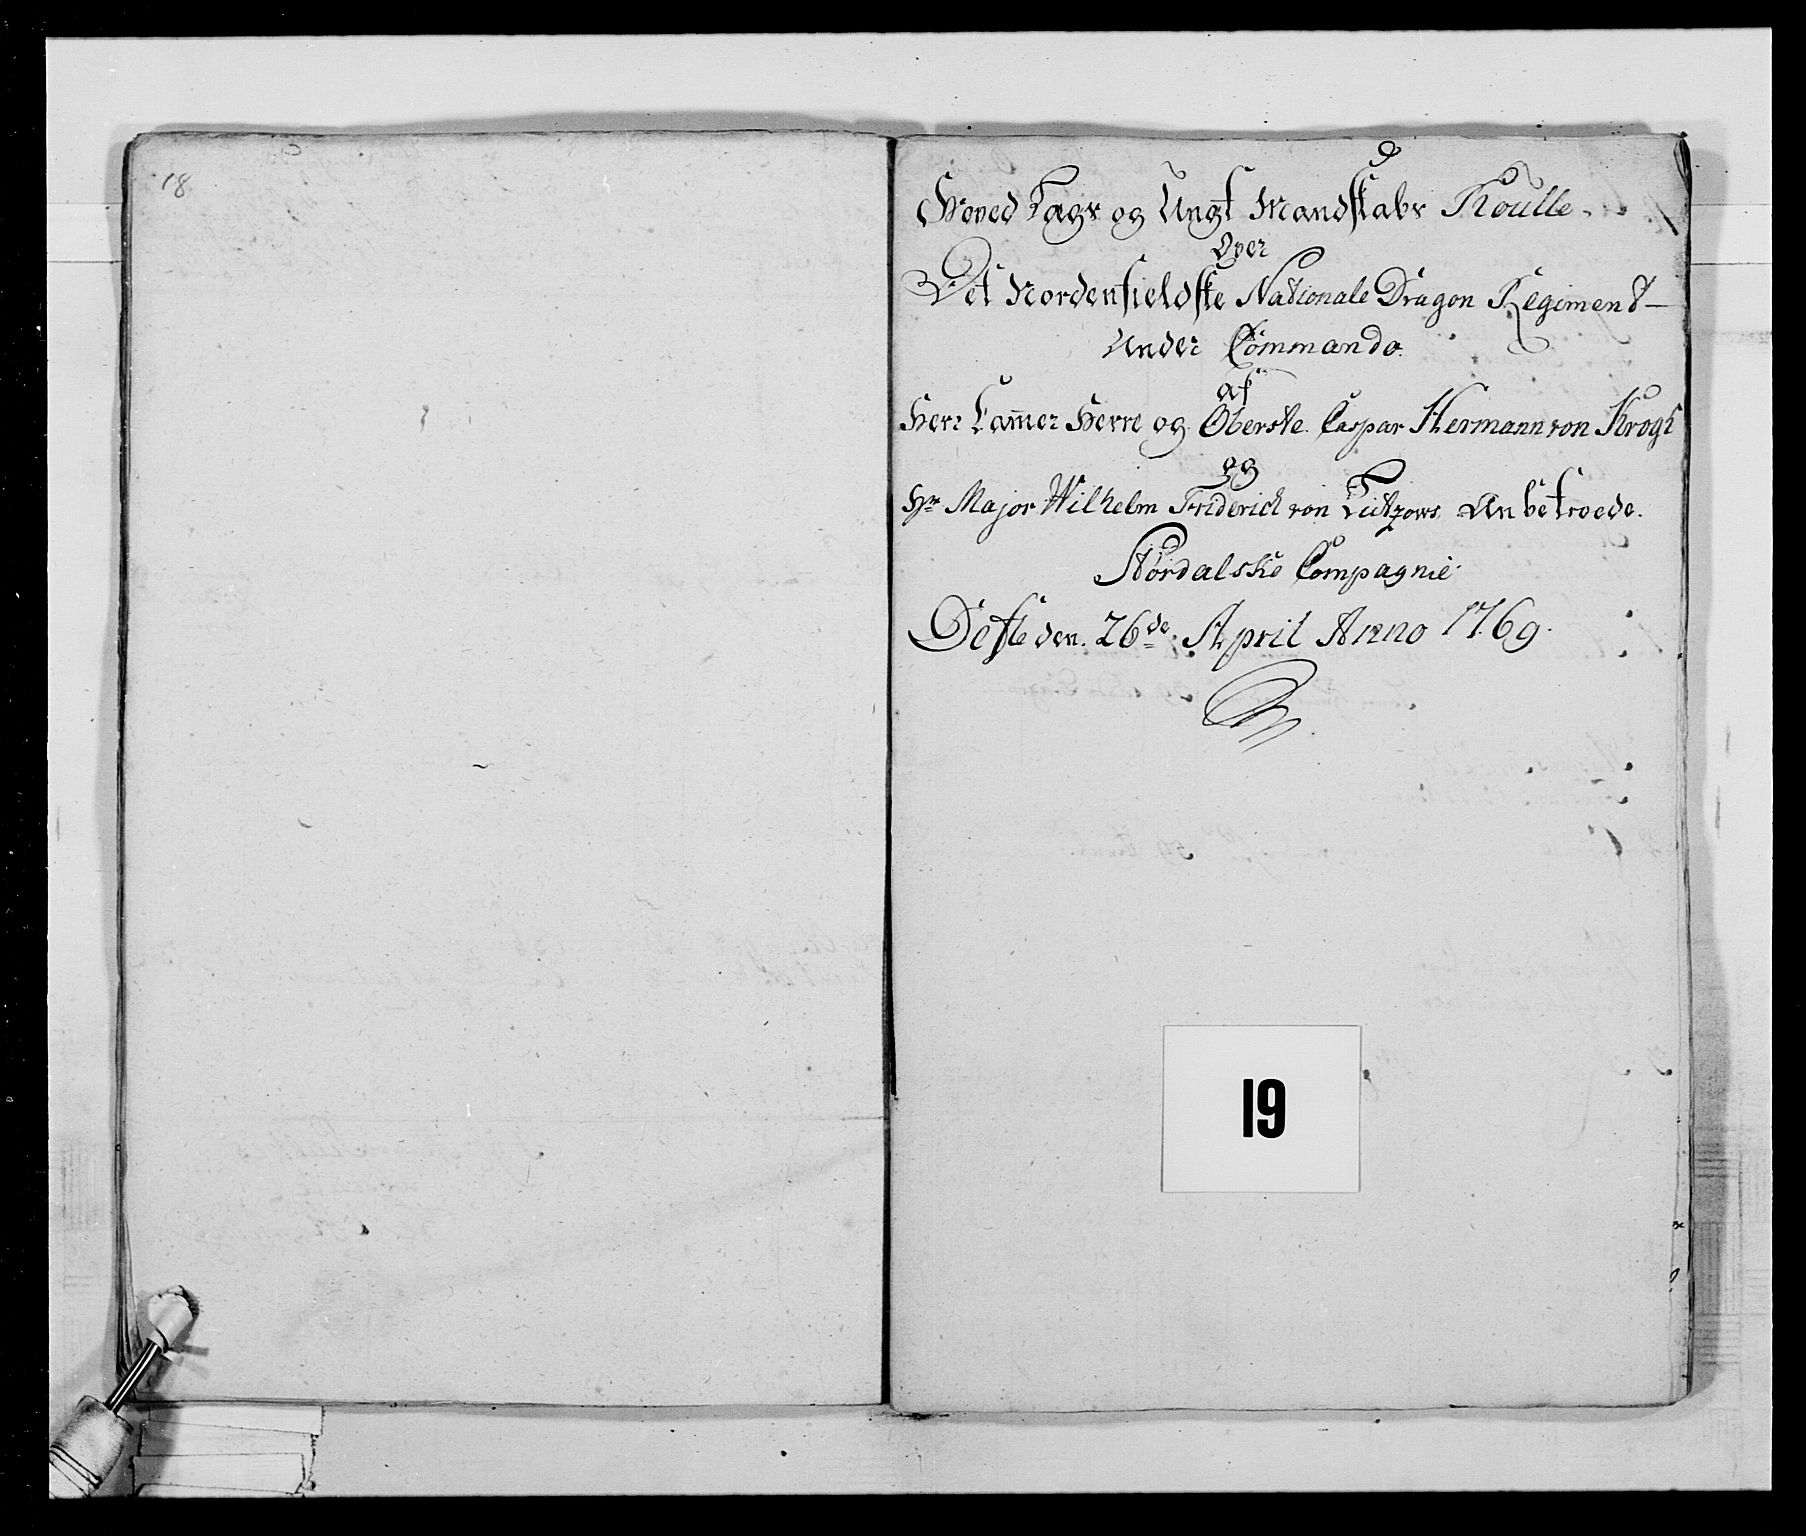 18
Hoved Tags og Ungt Mandskabs Roulle.
Over
Det Nordenfieldske Nationale Dragon Regiment
Under Commando
af
Herr Cammer Herre og Oberste Caspar Hermann von Krogh
og
Hr Major Wilhelm Friderich von Lützows Anbetroede
Stördalske Compagnie
den 26de April Anno 1769.
19